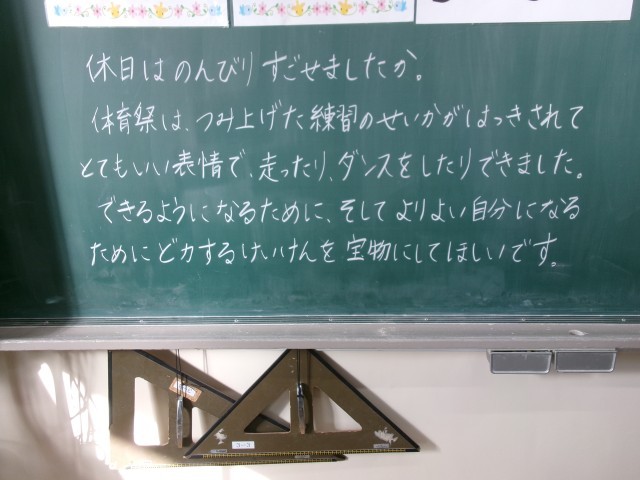 休日はのんびりすごせましたか。
体育祭は、つみ上げた練習のせいかがはっきされて
とてもいい表情で、走ったり、ダンスをしたりできました。
できるようになるために、そしてよりよい自分になる
ためにどカするけいけんを宝物にしてほしいです。
3-3